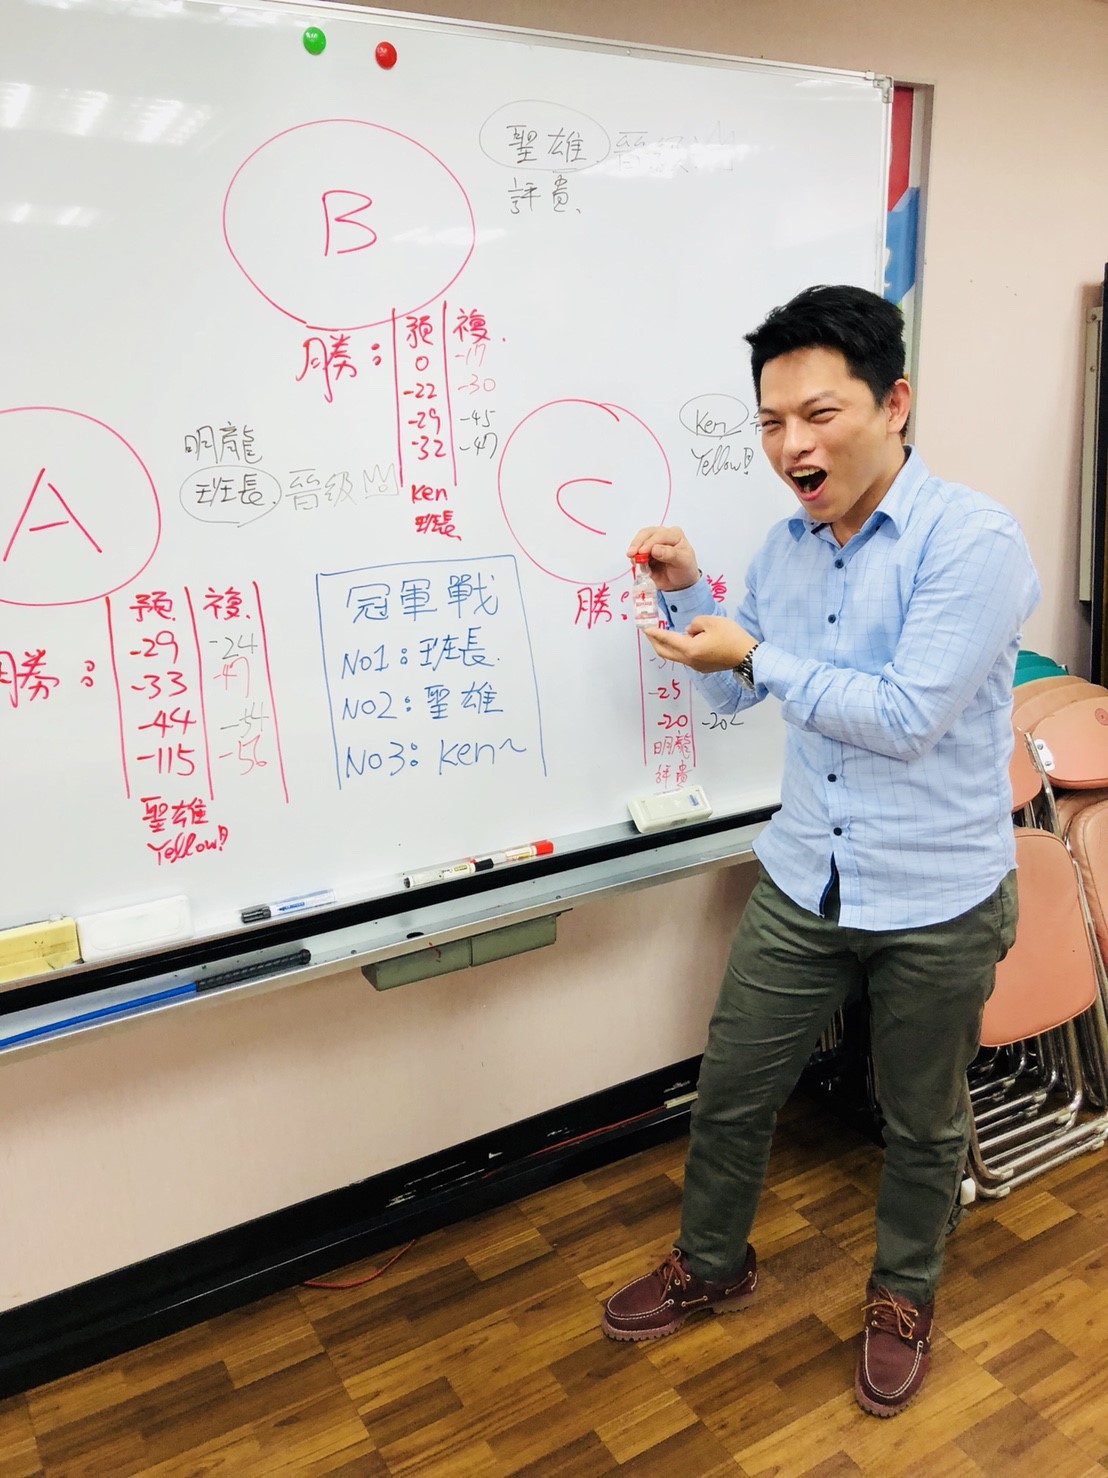 B
聖雄 晉級
評貴
勝： 預 複
0 -17
-22 -30
-29 -45
-32 -47
Ken
班長
A
明龍
班長 晉級
勝： 預 複
-29 -24
-33 -47
-44 -54
-115 -56
聖雄
Yellow!!
冠軍戰
No1：班長
No2：聖雄
No3：Ken~
C
Ken
Yellow!!
勝：
-25
-20
明龍
評貴